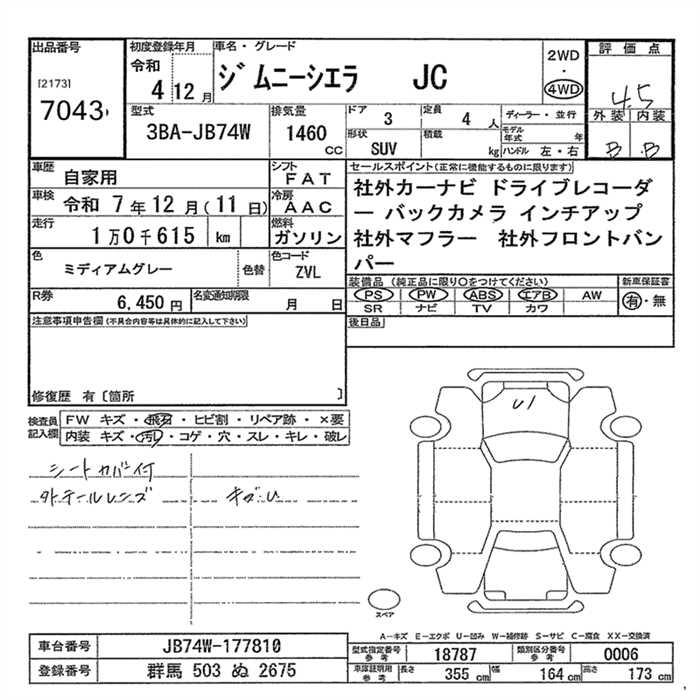 出品番号
[2173]
7043
初度登録年月
令和
4 12月
車名・グレード
ジムニーシエラ JC
2WD
・
4WD
評価点
4.5
外装 内装
B B
型式
3BA-JB74W
排気量
1460 cc
ドア 3
定員 4 人
形状 SUV
積載 kg
ディーラー・並行
モデル年式 年
ハンドル 左・右
車歴
自家用
シフト
FAT
車検 令和 7年12月(11日)
冷房
AAC
走行
1万0千615 km
燃料
ガソリン
色
ミディアムグレー
色替
色コード
ZVL
R券
6,450円
名変通知期限
月 日
セールスポイント(正常に機能するものに限ります)
社外カーナビ ドライブレコーダ
ー バックカメラ インチアップ
社外マフラー 社外フロントバン
パー
装備品 (純正品に限り○をつけてください)
PS PW ABS エアB AW
SR ナビ TV カワ
新車保証書
有・無
後日品
注意事項申告欄(不具合内容等は具体的に記入して下さい)
修復歴 有〔箇所 〕
検査員記入欄
FW キズ・飛石・ヒビ割・リペア跡・×要
内装 キズ・汚れ・コゲ・穴・スレ・キレ・破レ
シートカバー付
外テールレンズ
U1
スペア
A－キズ E－エクボ U－凹み W－補修跡 S－サビ C－腐食 XX－交換済
車台番号 JB74W-177810
登録番号 群馬 503 ぬ 2675
型式指定番号 参考 18787
類別区分番号 参考 0006
車庫証明用 参考
長さ 355 cm
幅 164 cm
高さ 173 cm